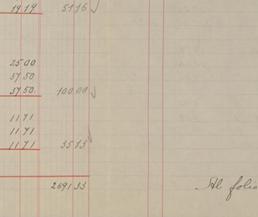 19 19 51 16
25 00
37 50
37 50 100 00
11 71
11 71
11 71 35 13
2691 33
Al folio